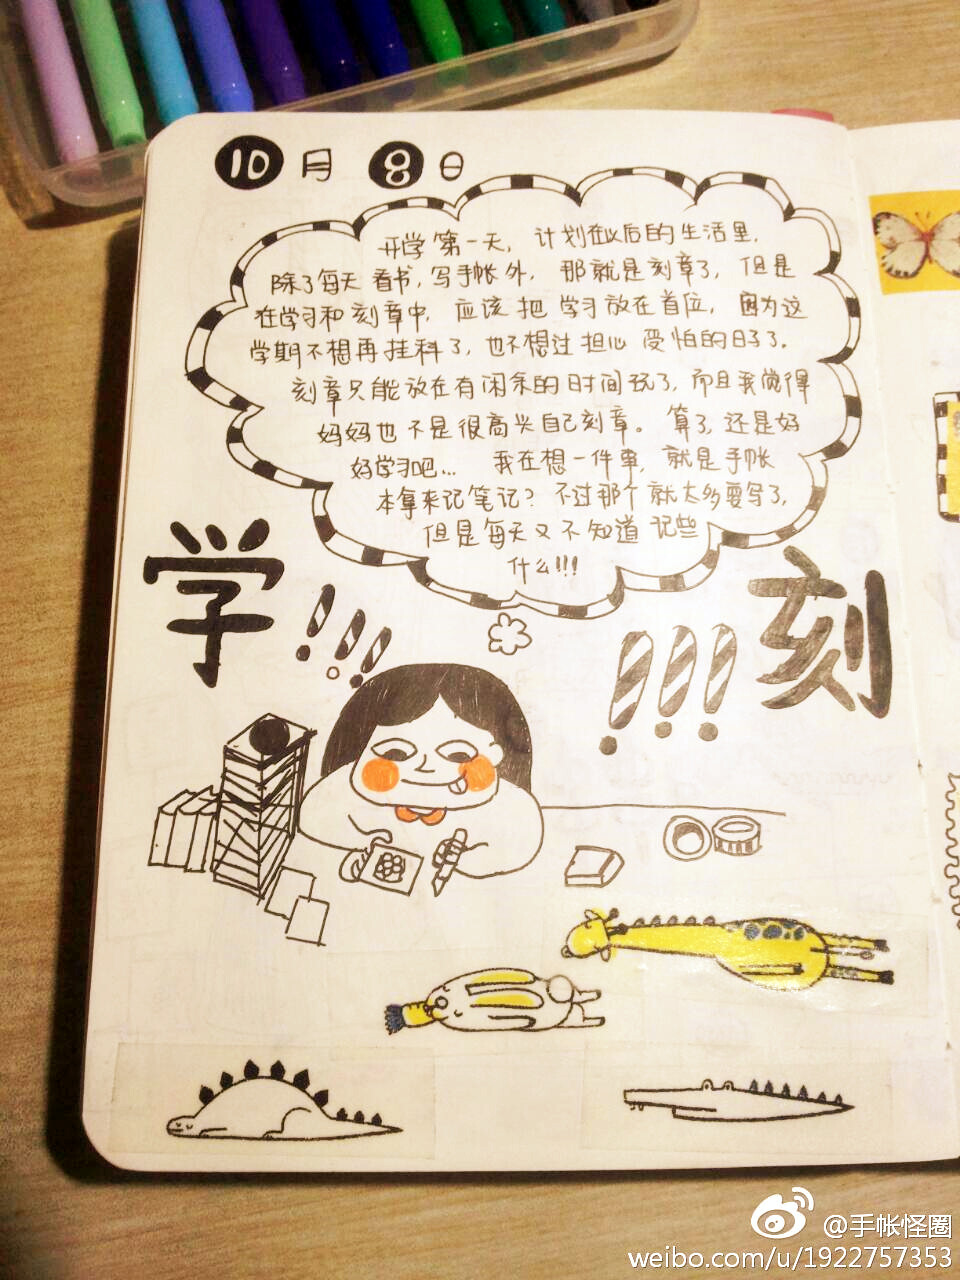 10月8日
开学第一天，计划在以后的生活里，
除了每天看书，写手帐外，那就是刻章了，但是
在学习和刻章中，应该把学习放在首位，因为这
学期不想再挂科了，也不想过担心受怕的日子了。
刻章只能放在有闲余的时间玩了，而且我觉得
妈妈也不是很高兴自己刻章。算了，还是好
好学习吧... 我在想一件事，就是手帐
本拿来记笔记？不过那个就太多要写了，
但是每天又不知道记些
什么!!!
学!!!
!!!刻
@手帐怪圈
weibo.com/u/1922757353